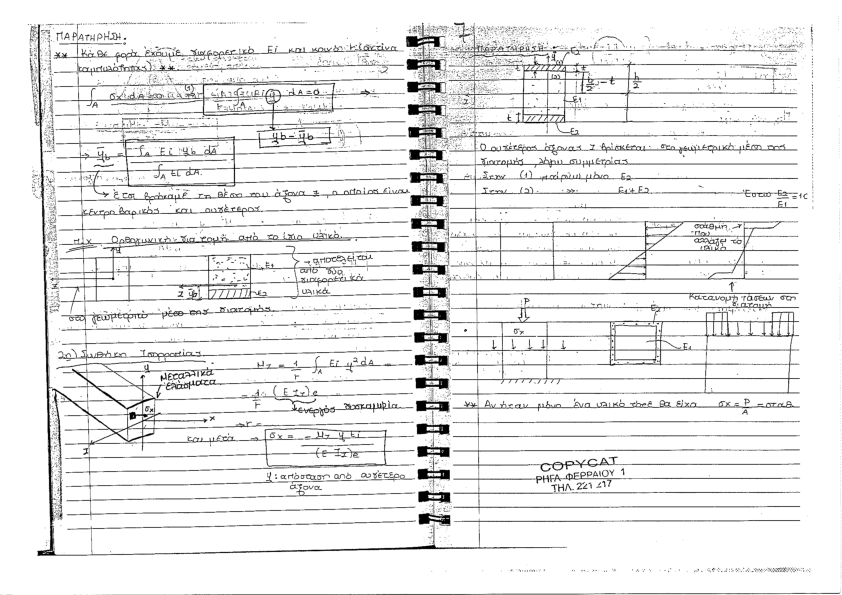 ΠΑΡΑΤΗΡΗΣΗ.
** Κάθε φορά έχουμε διαφορετικό Ei και κοινό κ(ακτίνα
καμπυλότητας) **
∫A σx dA = dA = 0 ⇒
yb - ȳb
→ ȳb = ∫A Ei yb dA / ∫A Ei dA.
→ έτσι βρήκαμε τη θέση του άξονα z, ο οποίος είναι
κεντροβαρικός και ουδέτερος.
π.χ Ορθογωνική διατομή από το ίδιο υλικό.
y
E1
→ αποτελείται
από δύο
διαφορετικά
υλικά
z ȳb
E2
στο γεωμετρικό μέσο της διατομής.
2η) Συνθήκη Ισορροπίας
y
Μεταλλικά
ελάσματα
σx
x
z
Mz = 1/r ∫A Ei y² dA =
= 1/r (E Iz)e
*ενεργός δυσκαμψία.
→ r =
και μετά → σx = - Mz y Ei / (E Iz)e
y: απόσταση από ουδέτερο
άξονα
ΠΑΡΑΤΗΡΗΣΗ:
E2
y
t
t
(2)
h/2 - t
h/2
E1
t
E2
Ο ουδέτερος άξονας z βρίσκεται στο γεωμετρικό μέσο της
διατομής, λόγω συμμετρίας
Στην (1) παίρνω μόνο E2
Στην (2) >> E1 + E2
Έστω E2/E1 = 10
στάθμη
που
αλλάζει το
υλικό
Κατανομή τάσεων στη
διατομή
P
σx
E2
E1
** Αν ήταν μόνο ένα υλικό τότε θα είχα σx = P/A = σταθ.
COPYCAT
ΡΗΓΑ ΦΕΡΡΑΙΟΥ 1
ΤΗΛ. 221 217